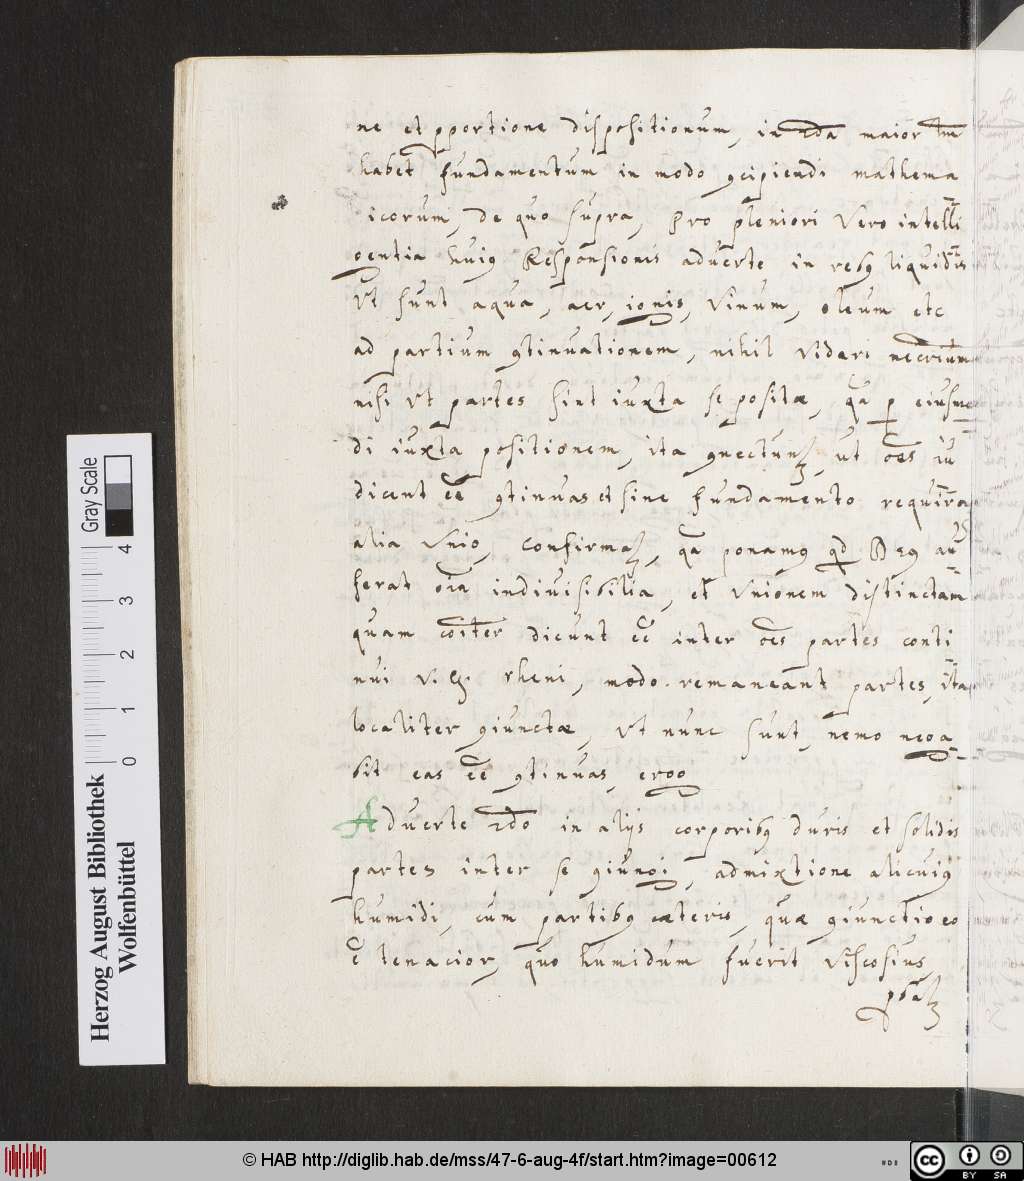 ne et pportione dispositionum, in 2da maior tm
habet fundamentum in modo 9cipiendi mathema
icorum, de quo supra, Pro pleniori vero intelli
gentia huiq Responsionis aduerte in rebq liquidis
vt sunt aqua, aer, ignis, vinum, oleum etc
ad partium 9tinuationem, nihil videri necrium
nisi vt partes sint iuxta se positæ, qa p eiusmo
di iuxta positionem, ita 9nectunr, ut oes iu
dicent ee 9tinuas et sine fundamento requira
alia vnio, confirmar, qa ponamq qd Deq au
ferat oia indiuisibilia, et vnionem distinctam
quam coiter dicunt ee inter oes partes conti
nui v.g. rheni, modo remaneant partes, ita
localiter 9iunctæ, vt nunc sunt, nemo nega
bit eas ee 9tinuas, ergo
Aduerte 2do in alijs corporibq duris et solidis
partes inter se 9iungi, admixtione alicuiq
humidi, cum partibq cæteris, quæ 9iunctio eo
e tenacior, quo humidum fuerit viscosius,
pbar
Gray Scale
4
3
2
1
0
Herzog August Bibliothek
Wolfenbüttel
© HAB http://diglib.hab.de/mss/47-6-aug-4f/start.htm?image=00612
cc
BY SA